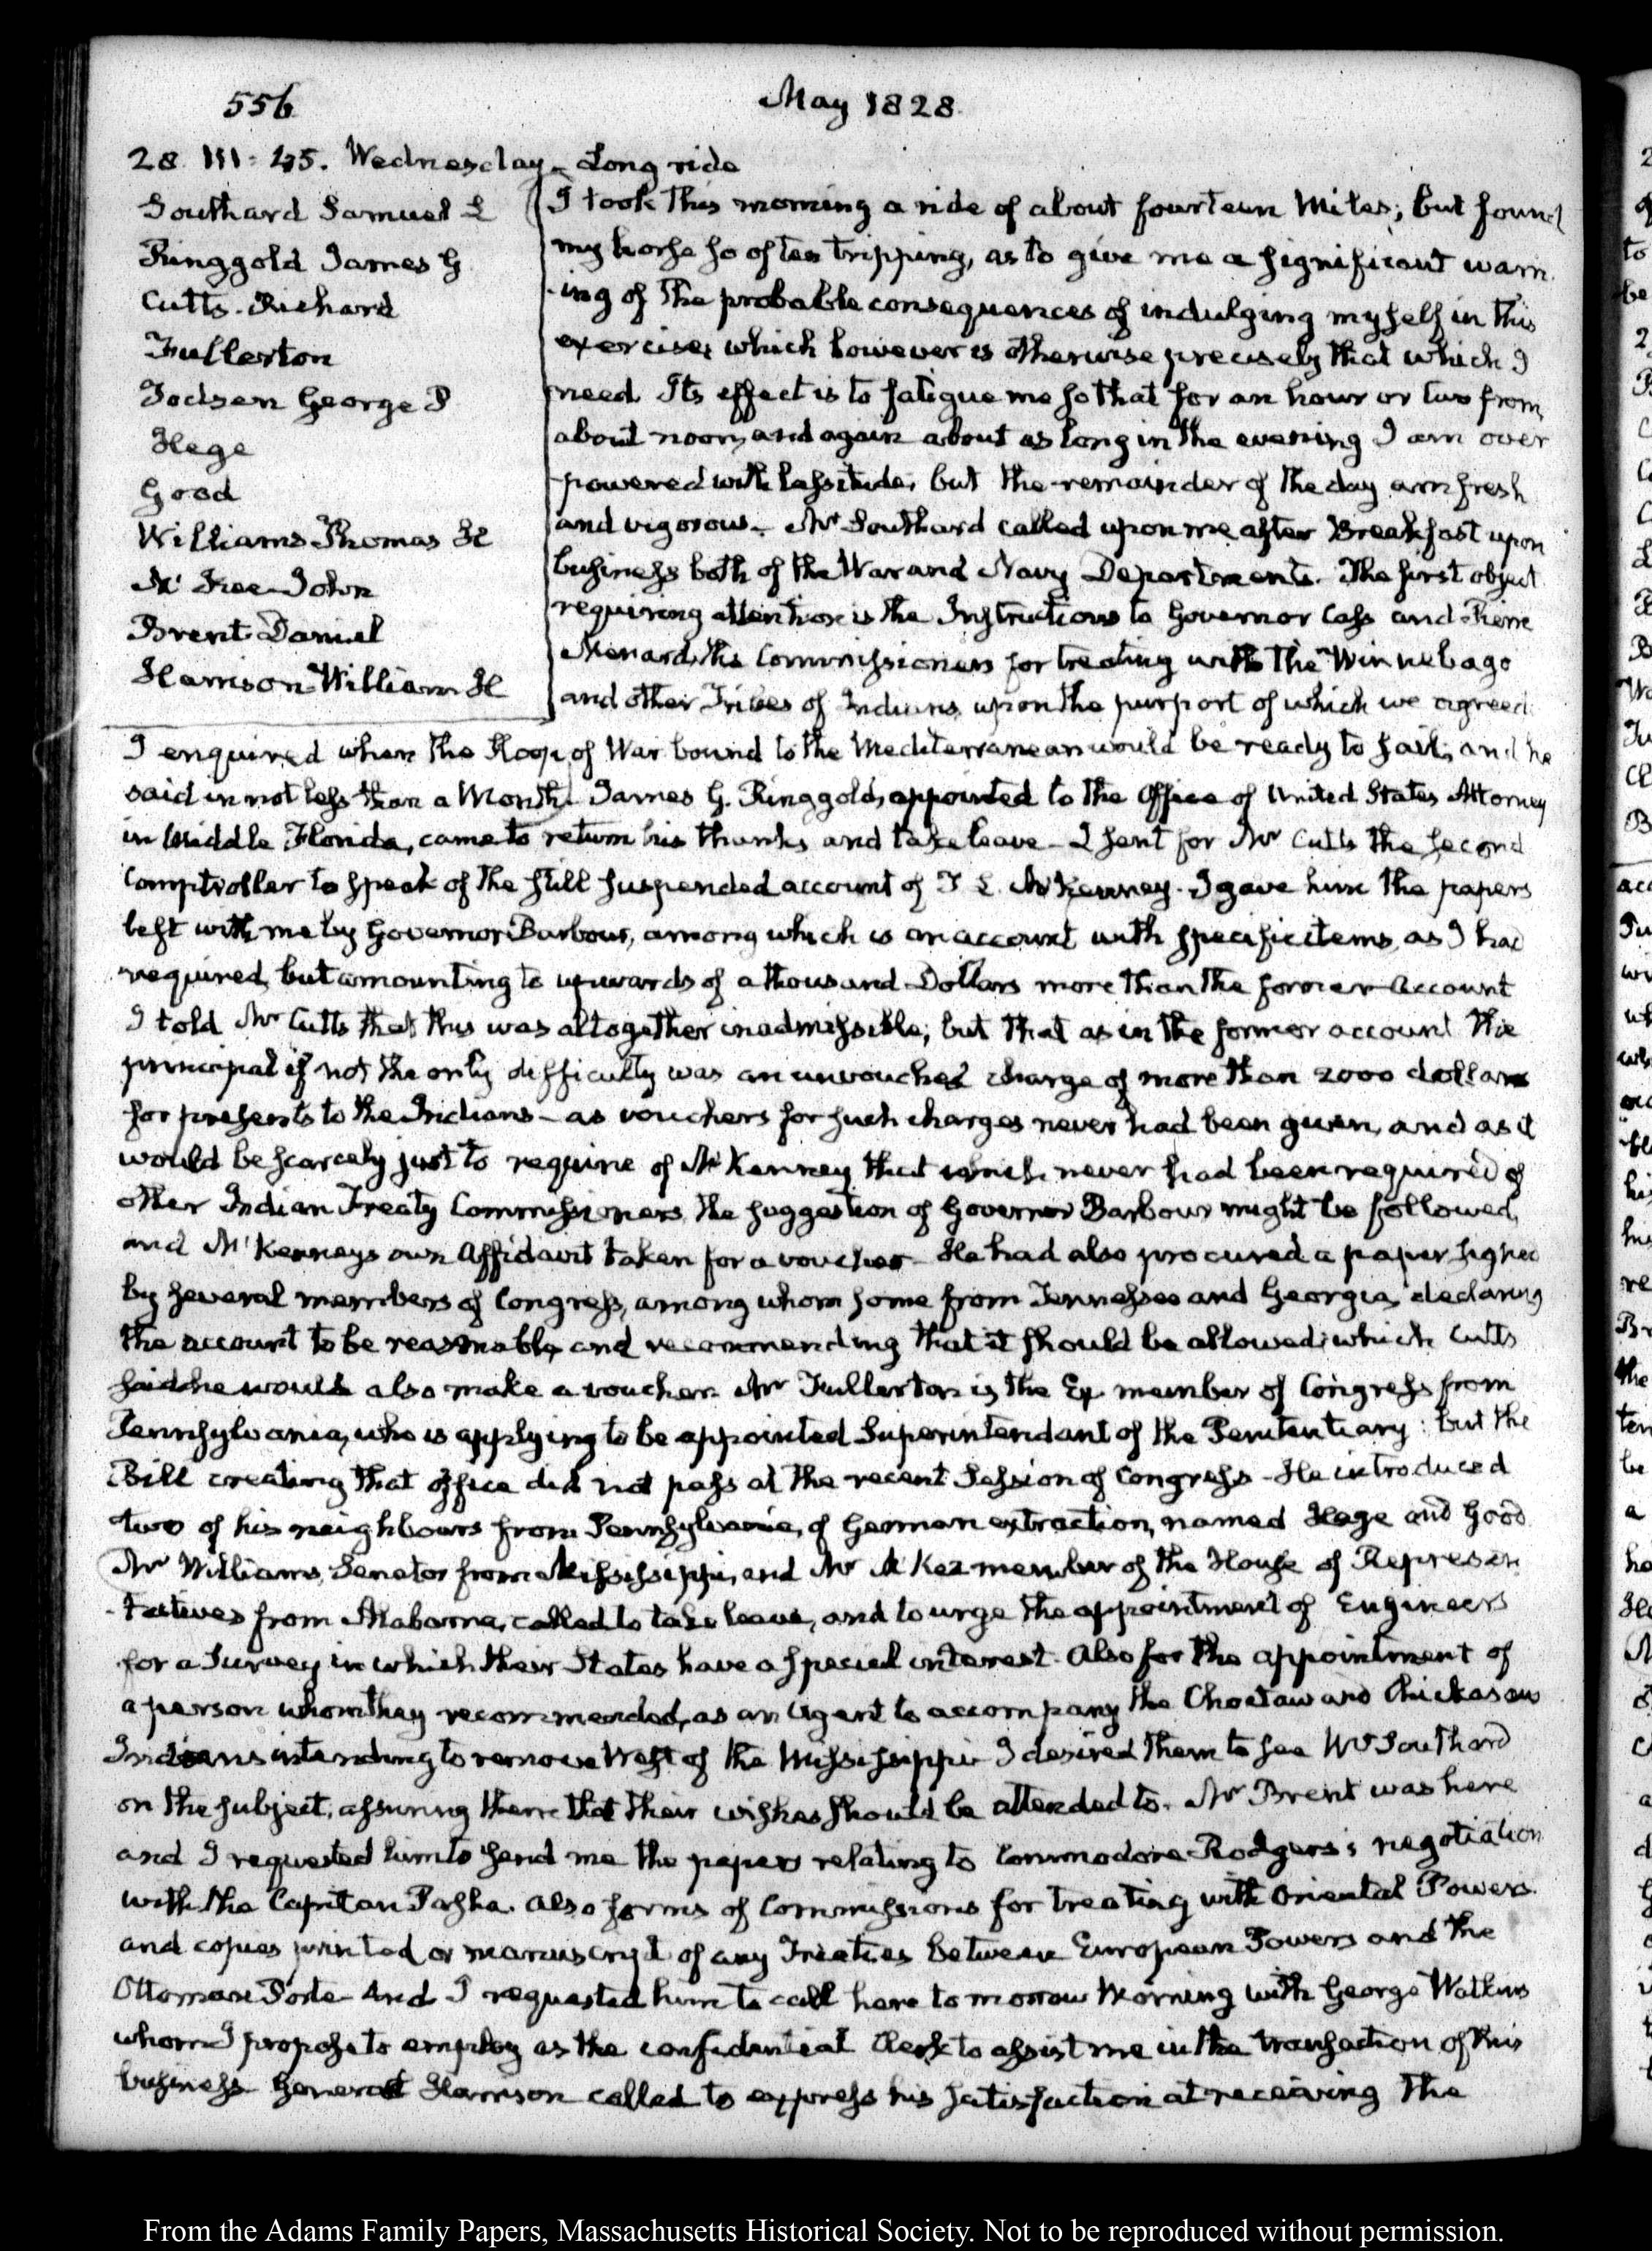 556
May 1828
28. III: 45. Wednesday. Long ride
Southard Samuel L
Ringgold James G
Cutts. Richard
Fullerton
Jodsen George P
Hege
Good
Williams Thomas H
Mc Kee John
Brent Daniel
Harrison William H
I took this morning a ride of about fourteen Miles; but found
my horse so often tripping, as to give me a significant warn-
-ing of the probable consequences of indulging myself in this
exercise, which however is otherwise precisely that which I
need. Its effect is to fatigue me so that for an hour or two from
about noon, and again about as long in the evening I am over
-powered with lassitude, but the remainder of the day am fresh
and vigorous. Mr Southard called upon me after Breakfast upon
business both of the War and Navy Departments. The first object
requiring attention is the Instructions to Governor Cass and Pierre
Menard, the Commissioners for treating with the Winnebago
and other Tribes of Indians, upon the purport of which we agreed.
I enquired when the Sloop of War bound to the Mediterranean would be ready to sail, and he
said in not less than a Month. James G. Ringgold, appointed to the Office of United States Attorney
in Middle Florida, came to return his thanks and take leave. I sent for Mr Cutts the second
Comptroller to speak of the still suspended account of T. L. McKenney. I gave him the papers
left with me by Governor Barbour, among which is an account with specific items, as I had
required, but amounting to upwards of a thousand Dollars more than the former account
I told Mr Cutts that this was altogether inadmissible; but that as in the former account the
principal if not the only difficulty was an unvouched charge of more than 2000 dollars
for presents to the Indians - as vouchers for such charges never had been given, and as it
would be scarcely just to require of McKenney that which never had been required of
other Indian Treaty Commissioners, the suggestion of Governor Barbour might be followed,
and McKenneys own Affidavit taken for a voucher. He had also procured a paper signed
by several members of Congress, among whom some from Tennessee and Georgia, declaring
the account to be reasonable, and recommending that it should be allowed: which Cutts
said he would also make a voucher. Mr Fullerton is the Ex member of Congress from
Pennsylvania, who is applying to be appointed Superintendant of the Penitentiary: but the
Bill creating that office did not pass at the recent Session of Congress - He introduced
two of his neighbours from Pennsylvania, of German extraction, named Hege and Good.
Mr Williams, Senator from Mississippi, and Mr McKee member of the House of Represen-
-tatives from Alabama, called to take leave, and to urge the appointment of Engineers
for a Survey in which their States have a special interest. Also for the appointment of
a person whom they recommended, as an Agent to accompany the Choctaw and Chickasaw
Indians intending to remove West of the Mississippi. I desired them to see Mr Southard
on the subject, assuring them that their wishes should be attended to. Mr Brent was here
and I requested him to send me the papers relating to Commodore Rodgers's negotiation
with the Capitan Pasha. also forms of Commissions for treating with Oriental Powers
and copies printed or manuscript of any Treaties between European Powers and the
Ottoman Porte. And I requested him to call here to morrow Morning with George Watkins
whom I propose to employ as the confidential Clerk to assist me in the transaction of this
business. General Harrison called to express his satisfaction at receiving the
From the Adams Family Papers, Massachusetts Historical Society. Not to be reproduced without permission.